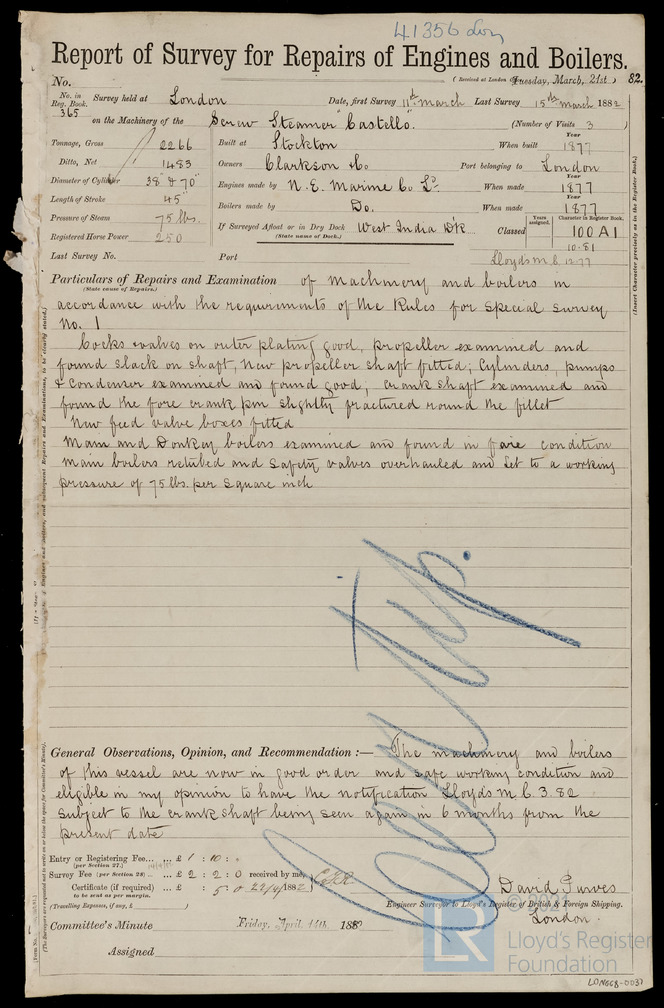 41356 Lon
Report of Survey for Repairs of Engines and Boilers.
No. (Received at London Tuesday, March, 21st 82.
No. in Reg. Book. 365 Survey held at London Date, first Survey 11th March Last Survey 15th March 1882
on the Machinery of the Screw Steamer "Castello". (Number of Visits 3)
Tonnage, Gross 2266 Built at Stockton When built Year 1877
Ditto, Net 1483 Owners Clarkson & Co Port belonging to London
Diameter of Cylinder 38" & 70" Engines made by N.E. Marine Co Ld. When made Year 1877
Length of Stroke 45" Boilers made by Do. When made Year 1877
Pressure of Steam 75 lbs. If Surveyed Afloat or in Dry Dock West India Dk Classed Years assigned. Character in Register Book. 100 A1
Registered Horse Power 250 (State name of Dock.) 10.81
Last Survey No. Port Lloyds M.C. 12.77
Particulars of Repairs and Examination of machinery and boilers in
(State cause of Repairs.)
accordance with the requirements of the Rules for Special Survey
No. 1
Cocks & valves on outer plating good, propeller examined and
found slack on shaft, New propeller shaft fitted; Cylinders, pumps
& Condenser examined and found good; crank shaft examined and
found the fore crank pin slightly fractured round the fillet
New feed valve boxes fitted
Main and Donkey boilers examined and found in fair condition
Main boilers retubed and Safety valves overhauled and set to a working
pressure of 75 lbs. per square inch
General Observations, Opinion, and Recommendation :— The machinery and boilers
of this vessel are now in good order and safe working condition and
eligible in my opinion to have the notification Lloyds M.C. 3.82
subject to the crank shaft being seen again in 6 months from the
present date
Entry or Registering Fee... £ 1 : 10 :
(per Section 27.)
Survey Fee (per Section 28) £ 2 : 2 : 0 received by me,
Certificate (if required) £ : 5 : 0 22/4/1882
to be sent as per margin.
(Travelling Expenses, if any, £ )
David Purves
Engineer Surveyor to Lloyd's Register of British & Foreign Shipping.
London.
Committee's Minute Friday, April 14th 188
Assigned
(Insert Character precisely as in the Register Book.)
© 2021
LR Lloyd's Register
Foundation
LDN668-0037